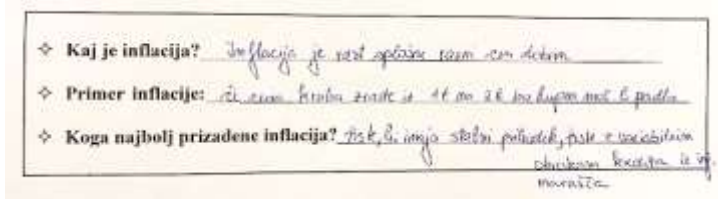 ❖ Kaj je inflacija? Inflacija je rast splošne ravni cen dobrin
❖ Primer inflacije: če cena kruha zraste iz 1€ na 2€ kupna moč pada
❖ Koga najbolj prizadene inflacija? Tiste, ki imajo stalni prihodek, tiste z variabilnim
obrestom kredita in